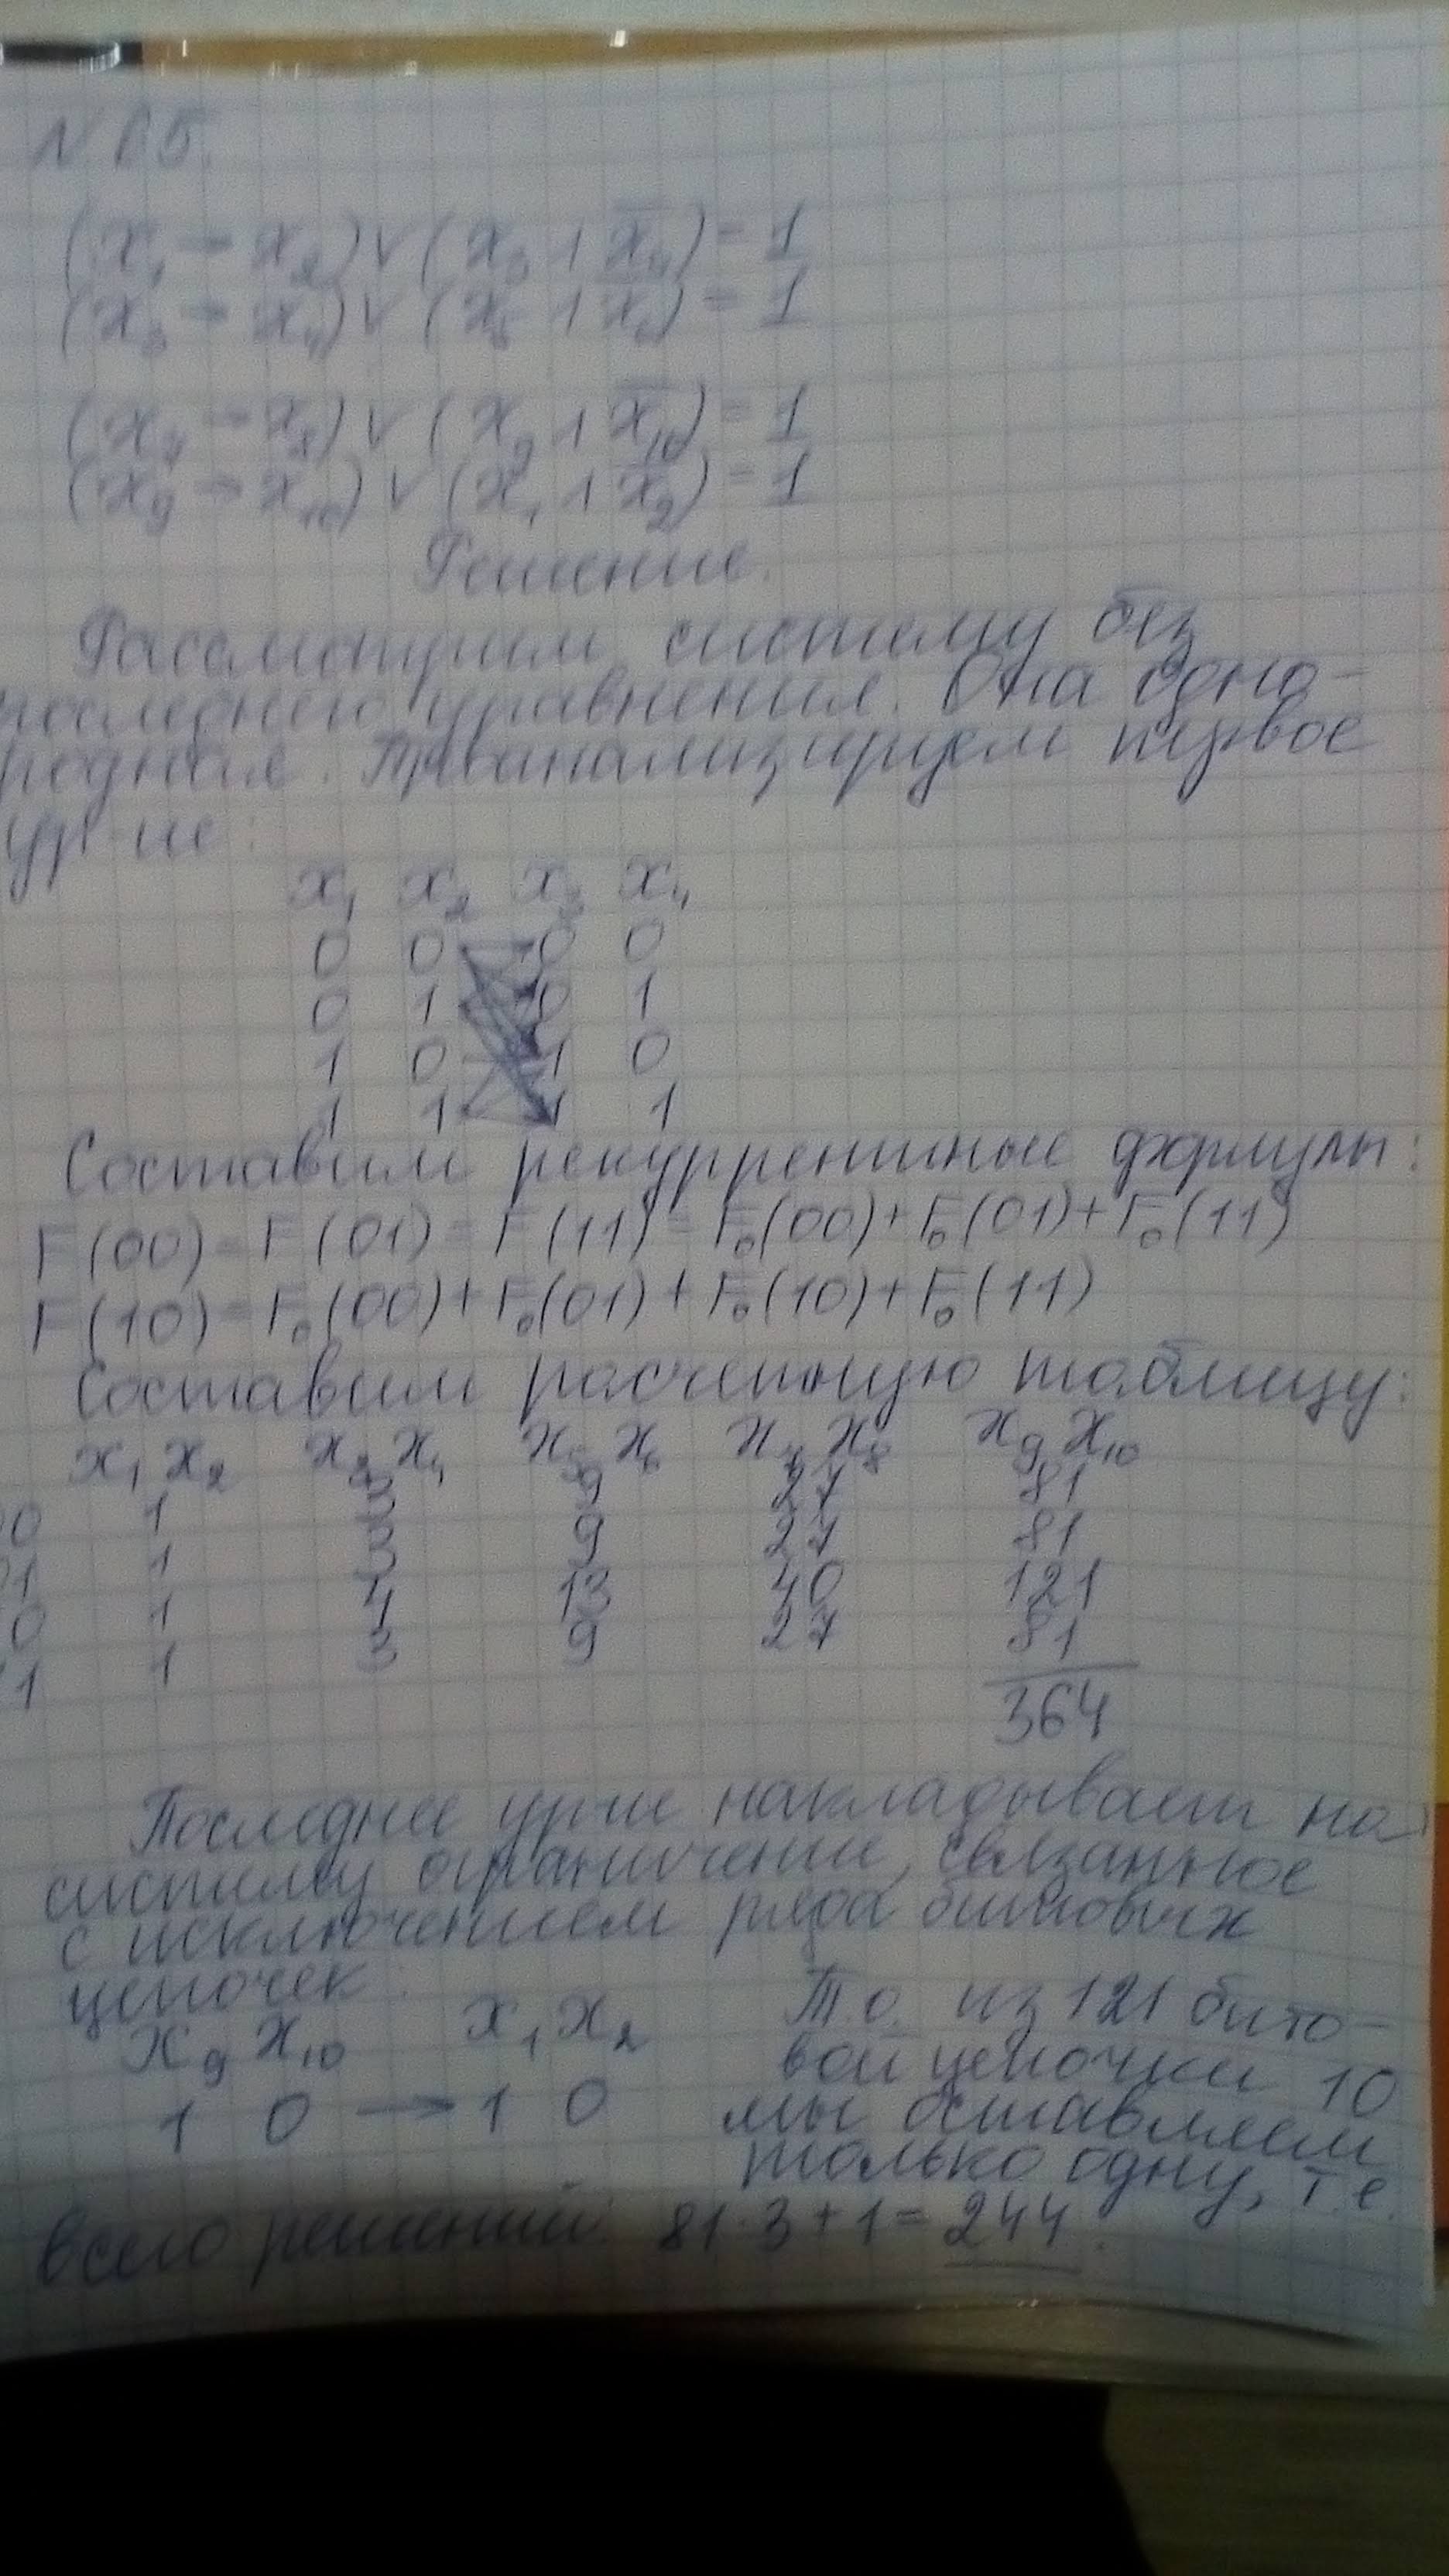 N B5.
(x₁ → x₂) ∨ (x₃ ∧ x̄₄) = 1
(x₃ → x₄) ∨ (x₅ ∧ x̄₆) = 1
(x₇ → x₈) ∨ (x₉ ∧ x̄₁₀) = 1
(x₉ → x₁₀) ∨ (x₁ ∧ x̄₂) = 1
Решение.
Рассмотрим систему без
последнего уравнения. Она одно-
родная. Проанализируем первое
ур-ие:
x₁ x₂ x₃ x₄
0 0 0 0
0 1 0 1
1 0 1 0
1 1 1 1
Составим рекуррентные формулы:
F(00) = F(01) = F(11) = F₀(00) + F₀(01) + F₀(11)
F(10) = F₀(00) + F₀(01) + F₀(10) + F₀(11)
Составим расчетную таблицу:
x₁ x₂ x₃ x₄ x₅ x₆ x₇ x₈ x₉ x₁₀
0 1 3 9 27 81
01 1 3 9 27 81
0 1 4 13 40 121
1 1 3 9 27 81
364
Последнее ур-ие накладывает на
систему ограничение, связанное
с исключением ряда битовых
цепочек:
x₉ x₁₀ x₁ x₂ Т.о. из 121 бито-
вой цепочки 10
1 0 → 1 0 мы оставляем
только одну, т.е.
всего решений: 81·3+1=244.